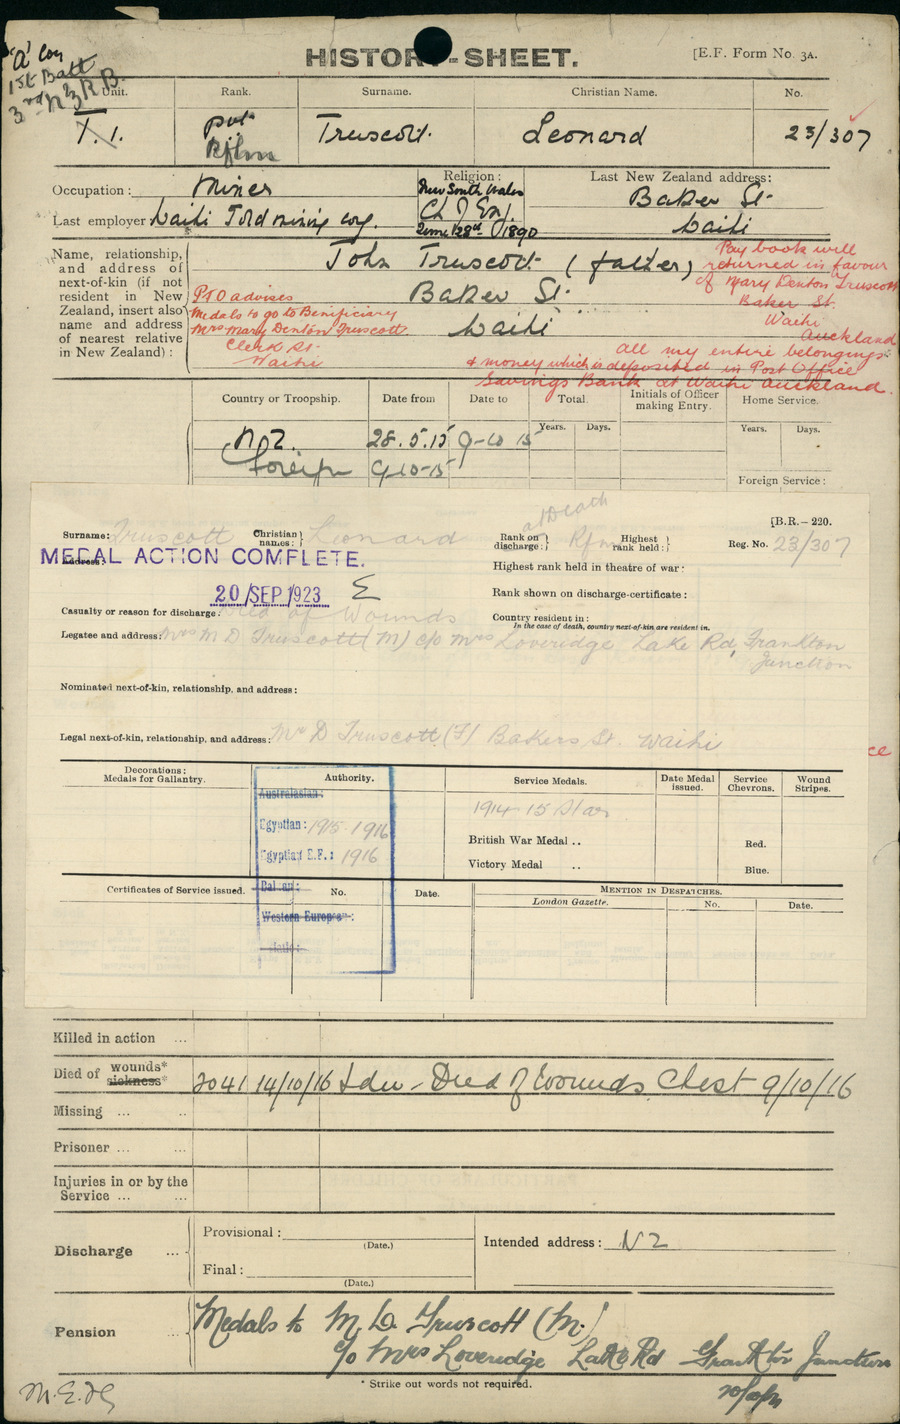 HISTORY-SHEET.
[E.F. Form No. 3A.
'A' Coy
1st Batt
3rd N Z R B.
Unit. Rank. Surname. Christian Name. No.
T. 1. pvt Truscott. Leonard 23/307
Rflmn
Occupation: Miner
Religion: New South Wales
Ch of Eng.
June 28th 1890
Last New Zealand address: Baker St.
Waihi
Last employer Waihi Gold mining coy.
Name, relationship, and address of next-of-kin (if not resident in New Zealand, insert also name and address of nearest relative in New Zealand):
John Truscott (father)
Baker St.
Waihi
Pay book will
returned in favour
of Mary Denton Truscott
Baker St.
Waihi
Auckland
all my entire belongings
& money which is deposited in Post Office
Savings Bank at Waihi Auckland.
PTO advises
Medals to go to Beneficiary
Mrs Mary Denton Truscott
Clerk St.
Waihi
Country or Troopship. Date from Date to Total. Initials of Officer making Entry. Home Service.
Years. Days. Years. Days.
N Z. 28.5.15 9-10 15
Foreign 9-10-15
Foreign Service:
[B.R.—220.
Surname: Truscott Christian names: Leonard Rank on discharge: at Death Rfm Highest rank held: Reg. No. 23/307
Address:
MEDAL ACTION COMPLETE.
20 SEP 1923
Highest rank held in theatre of war:
Rank shown on discharge-certificate:
Casualty or reason for discharge: Died of Wounds
Country resident in:
In the case of death, country next-of-kin are resident in.
Legatee and address: Mrs M D Truscott (M) c/o Mrs Loveridge Lake Rd, Frankton
Junction
Nominated next-of-kin, relationship, and address:
Legal next-of-kin, relationship, and address: Mr D Truscott (F) Bakers St. Waihi
Decorations: Medals for Gallantry. Authority. Service Medals. Date Medal issued. Service Chevrons. Wound Stripes.
Australasian:
Egyptian: 1915-1916
Egyptian E.F.: 1916
Balkan:
Western European:
1914-15 Star
British War Medal ..
Victory Medal ..
Red.
Blue.
Certificates of Service issued. No. Date.
Mention in Despatches.
London Gazette. No. Date.
Killed in action ...
Died of wounds* sickness* 2041 14/10/16 Died of Wounds Chest 9/10/16
Missing ... ...
Prisoner ... ...
Injuries in or by the Service ... ...
Discharge ...
Provisional:
(Date.)
Final:
(Date.)
Intended address: N Z
Pension ...
Medals to M. D. Truscott (M.)
c/o Mrs Loveridge Lake Rd Frankton Junction
* Strike out words not required.